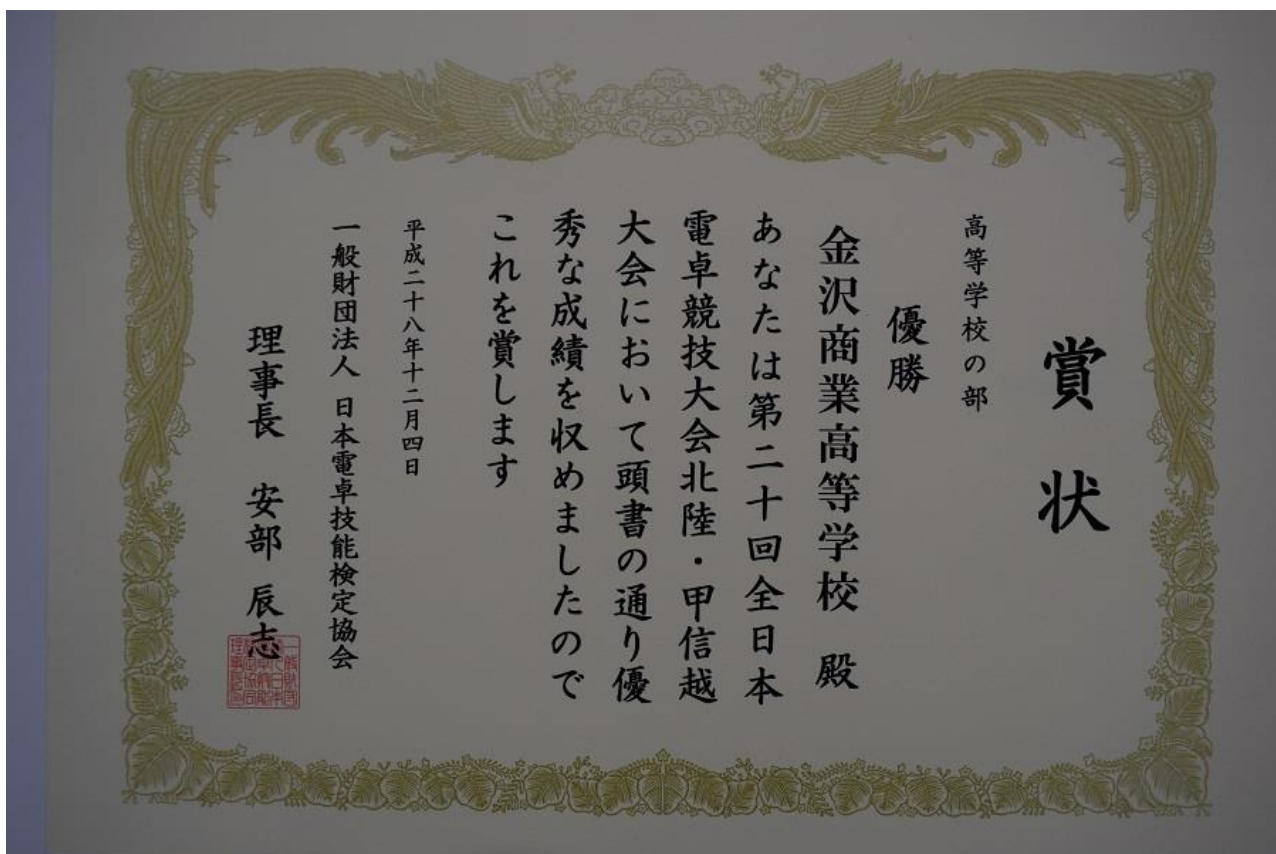 賞状
高等学校の部
優勝
金沢商業高等学校 殿
あなたは第二十回全日本
電卓競技大会北陸・甲信越
大会において頭書の通り優
秀な成績を収めましたので
これを賞します
平成二十八年十二月四日
一般財団法人 日本電卓技能検定協会
理事長 安部 辰志